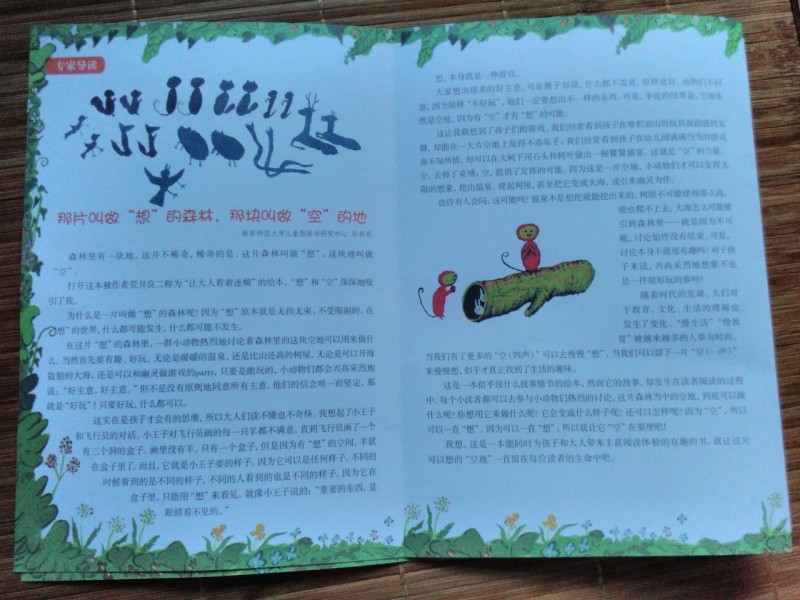 专家导读
那片叫做“想”的森林，那块叫做“空”的地
南京师范大学儿童图画书研究中心
森林里有一块地，这并不稀奇，稀奇的是，这片森林叫做“想”，这块地叫做
“空”。
打开这本被作者荒井良二称为“让大人看着迷糊”的绘本，“想”和“空”深深地吸
引了我。
为什么是一片叫做“想”的森林呢？因为“想”原本就是无拘无束、不受限制的。在
“想”的世界，什么都可能发生，什么都可能不发生。
在这片“想”的森林里，一群小动物热烈地讨论着森林里的这块空地可以用来做什
么。当然首先要有趣、好玩。无论是暖暖的温泉，还是比山还高的树屋，无论是可以开海
盗船的大海，还是可以和幽灵做游戏的party，只要是能玩的，小动物们都会兴高采烈地
说：“好主意，好主意。”但不是没有原则地同意所有主意，他们的信念唯一而坚定，那
就是“好玩”！只要好玩，什么都可以。
这实在是孩子才会有的思维，所以大人们读不懂也不奇怪。我想起了小王子
和飞行员的对话。小王子对飞行员画的每一只羊都不满意，直到飞行员画了一个
有三个洞的盒子，画里没有羊，只有一个盒子，但是因为有“想”的空间，羊就
在盒子里了。而且，它就是小王子要的样子，因为它可以是任何样子。不同的
时候看到的是不同的样子，不同的人看到的也是不同的样子，因为它在
盒子里，只能用“想”来看见。就像小王子说的：“重要的东西，是
眼睛看不见的。”
想，本身就是一种游戏。
大家想出很多的好主意，可是猴子却说，什么都不需要，原样就好。动物们不同
意，因为原样“不好玩”，他们一定要想出不一样的东西。可是，争论的结果是，空地依
然是空地，因为有“空”才有“想”的可能。
这让我联想到了孩子们的游戏。我们经常看到孩子在堆积如山的玩具面前感到无
聊，却能在一大片空地上玩得不亦乐乎；我们经常看到孩子在幼儿园满满当当的游戏
角不知所措，却可以在大树下用石头和树叶做出一顿饕餮盛宴。这就是“空”的力量。
空，去掉了束缚；空，提供了发挥的可能。因为这是一片空地，小动物们才可以发挥无
限的想象，挖出温泉，建起树屋，甚至把它变成大海，或引来幽灵为伴。
也许有人会问：这可能吗？温泉不是想挖就能挖出来的，树屋不可能建得那么高，
能也爬不上去，大海怎么可能能
引到森林里——就是因为不可
能，讨论始终没有结果，可是，
讨论本身不就很有趣吗？对于孩
子来说，兴高采烈地想象不也
是一件很好玩的事吗？
随着时代的发展，人们对
于教育、文化、生活的理解也
发生了变化。“慢生活”“慢教
育”被越来越多的人奉为时尚。
当我们有了更多的“空（四声）”可以去慢慢“想”，当我们可以留下一片“空（一声）”
来慢慢想，似乎才真正找到了生活的趣味。
这是一本似乎没什么故事情节的绘本，然而它的故事，却发生在读者阅读的过程
中。每个小读者都可以去参与小动物们热烈的讨论，这片森林当中的空地，到底可以做
什么呢？你想用它来做什么呢？它会变成什么样子呢？还可以怎样呢？因为“空”，所以
可以一直“想”，因为可以一直“想”，所以就让它“空”在那里吧！
我想，这是一本能同时为孩子和大人带来丰富阅读体验的有趣的书，就让这片
可以想的“空地”一直留在每位读者的生命中吧。